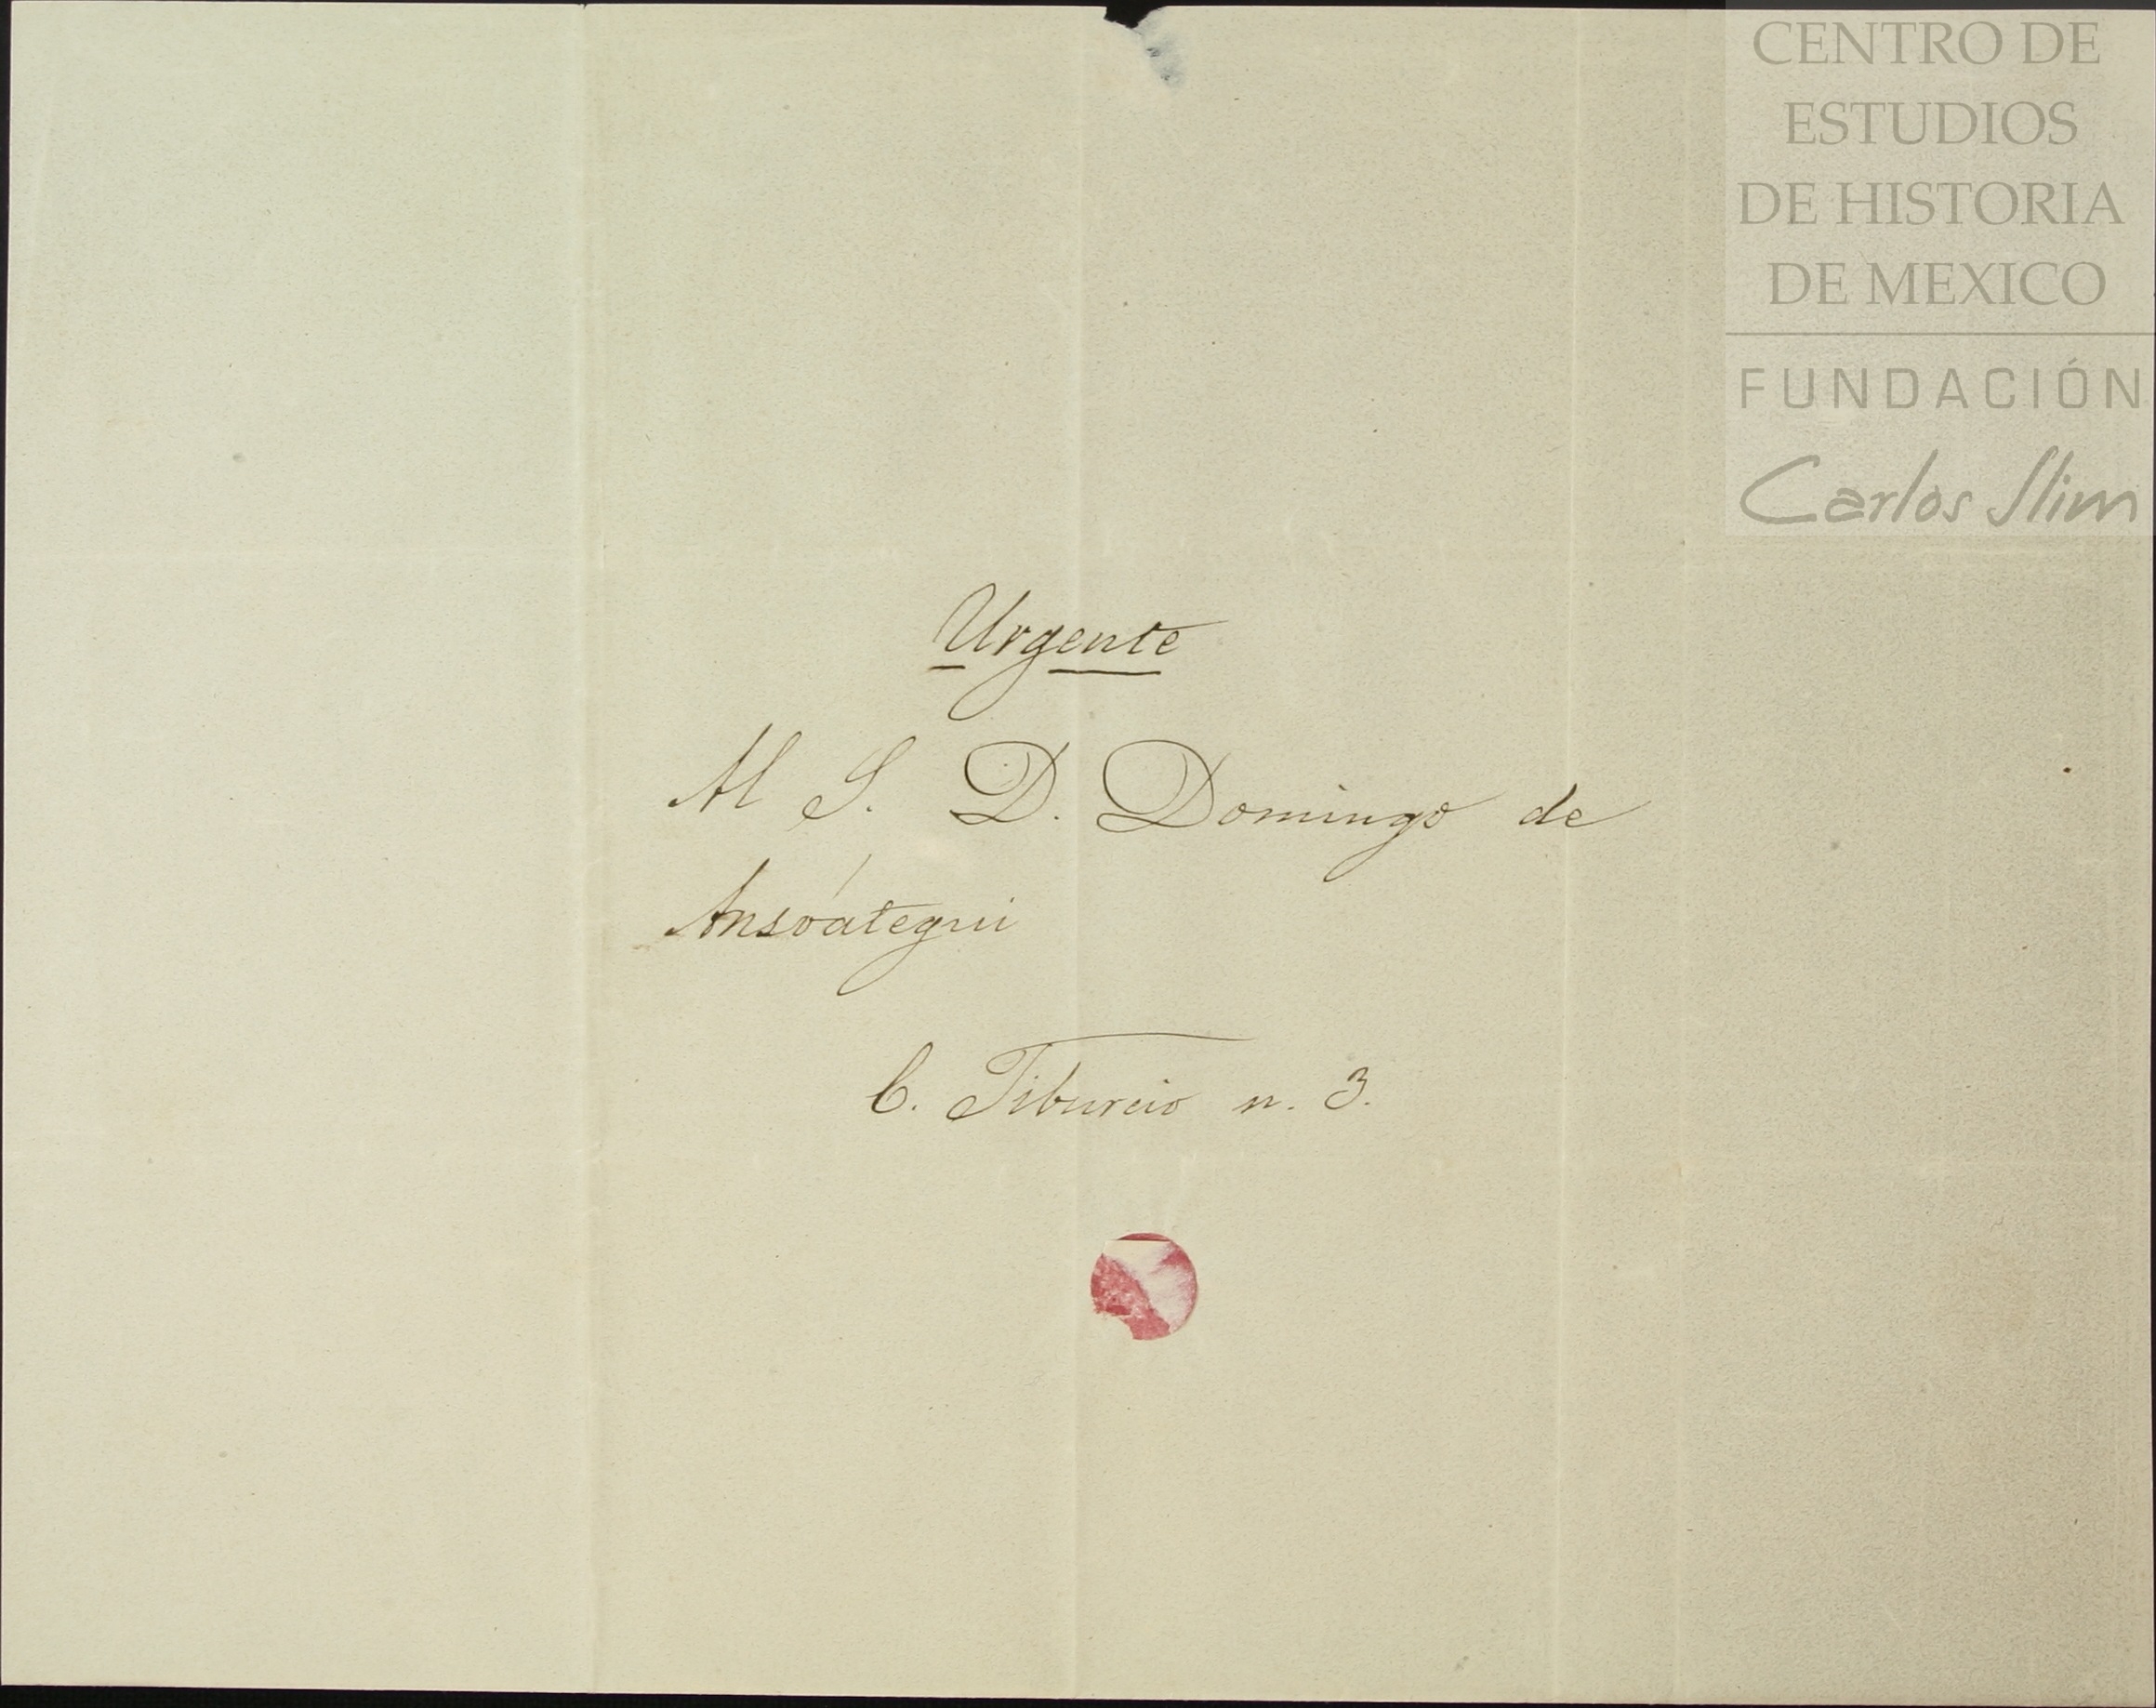 CENTRO DE
ESTUDIOS
DE HISTORIA
DE MEXICO
FUNDACIÓN
Carlos Slim
Urgente
Al S. D. Domingo de
Ansoátegui
C. Tiburcio n. 3.